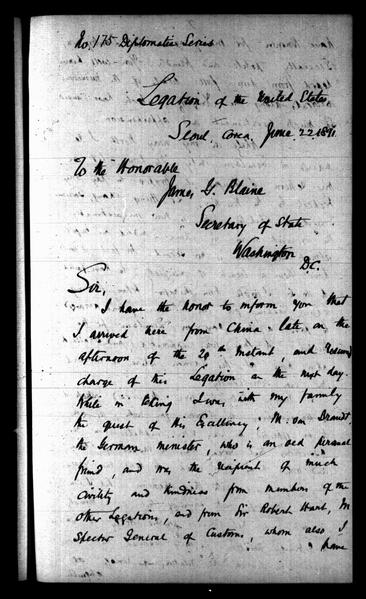 No. 175 Diplomatic Series
Legation of the United States,
Seoul Corea, June 22 1891
To the Honorable
James G. Blaine
Secretary of State
Washington
D.C.
Sir,
I have the honor to inform you that
I arrived here from China late on the
afternoon of the 20th instant, and resumed
charge of this Legation on the next day.
While in Peking I was with my family
the guest of His Excellency, M. von Brandt,
the German minister, who is an old personal
friend, and was the recipient of much
civility and kindness from members of the
other Legations, and from Sir Robert Hart, In
spector General of Customs, whom also I
have